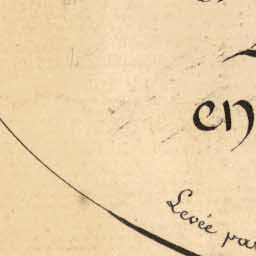 en
Levée par